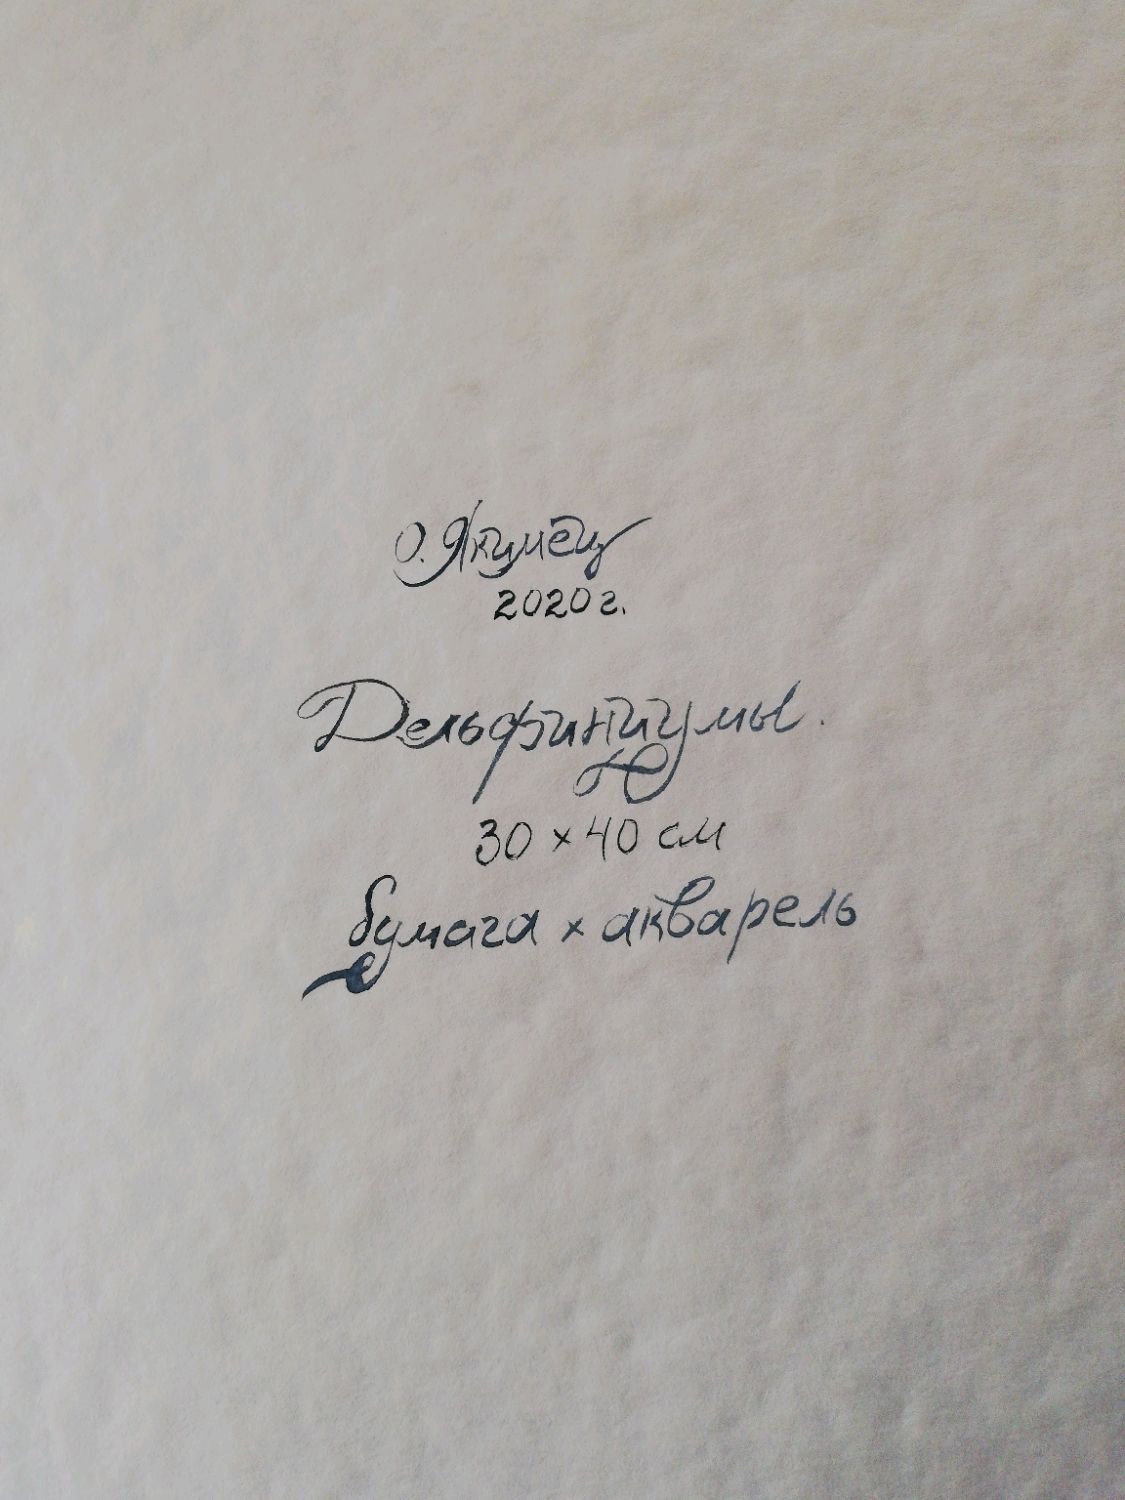 О. Якимец
2020 г.
Дельфиниумы.
30 × 40 см
бумага × акварель